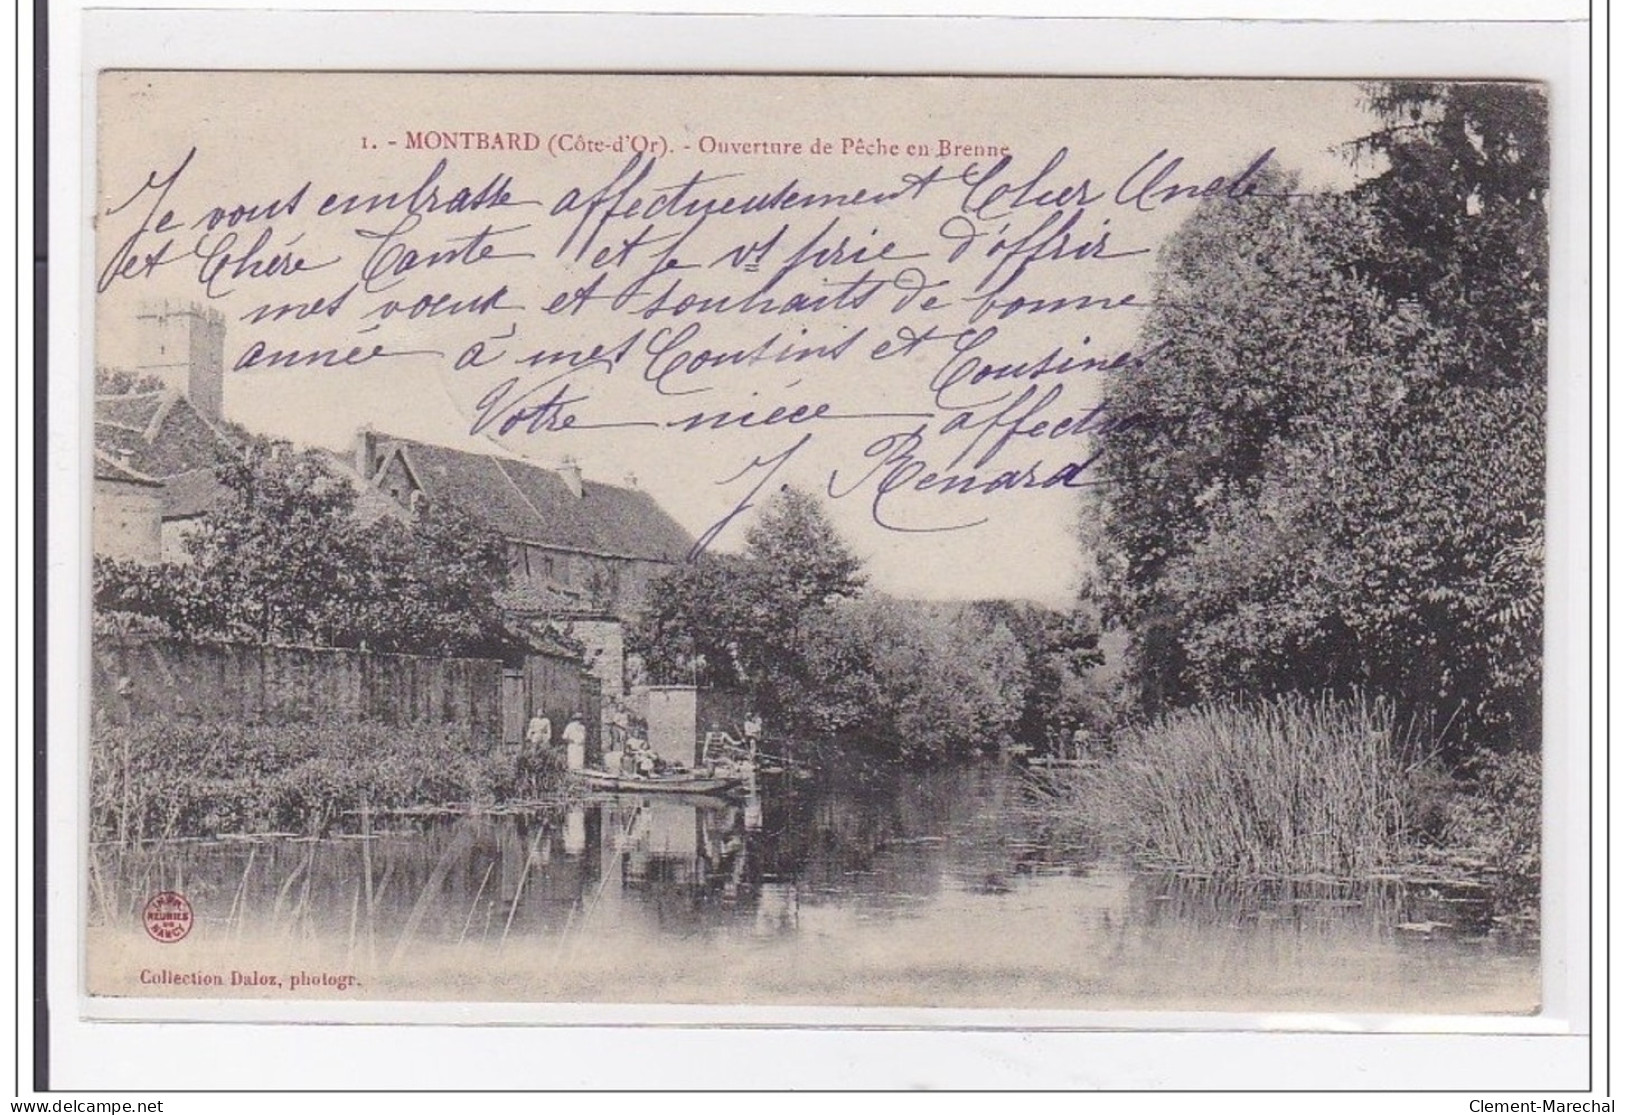 1. - MONTBARD (Côte-d'Or). - Ouverture de Pêche en Brenne
Je vous embrasse affectueusement Cher Uncle
et Chère Tante et je vs prie d'offrir
mes voeux et souhaits de bonne
année à mes Cousins et Cousines
Votre nièce affectu
J. Renard
IMPR.
REUNIES
DE
NANCY
Collection Daloz, photogr.
delcampe.net
Clement-Marechal